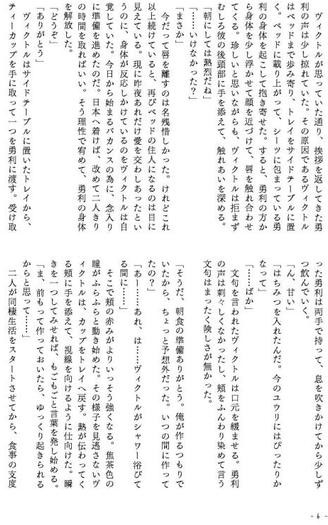 ヴィクトルが思っていた通り、挨拶を返してきた勇
利の声は少し掠れていた。その原因であるヴィクトル
はベッドまで歩み寄り、トレイをサイドテーブルに置
く。ベッドに載り上がって、シーツに包まっている勇
利の身体を起こして抱き寄せた。すると、勇利の方か
ら身体を少し浮かせて顔を近づけて、唇を触れ合わせ
てくる。珍しいと思いながらも、ヴィクトルは拒まず
むしろ彼の後頭部に手を添えて、触れあいを深める。
「朝にしては熱烈だね」
「……いけなかった？」
「まさか」
今だって唇を離すのは名残惜しかった。けれどこれ
以上続けていると、再びベッドの住人になるのは目に
見えている。現に昨夜あれだけ愛を交わしあったとい
うのに、身体が反応しかけているのをヴィクトルは自
覚していた。今日から始まるバカンスの為に、念入り
に準備を進めたのだ。日本へ着けば、改めて二人きり
の時間を取ればいい。そう理性で宥めて、勇利の身体
を解放した。
「どうぞ」
「ありがとう」
ヴィクトルはサイドテーブルに置いたトレイから、
ティーカップを手に取って一つを勇利に渡す。受け取
った勇利は両手で持って、息を吹きかけてから少しず
つ飲んでいく。
「ん、甘い」
「はちみつを入れたんだ。今のユウリにはぴったりか
なって」
「……ばか」
文句を言われたヴィクトルは口元を緩ませる。勇利
の声は刺々しくなかったし、頬をふんわり染めて言う
文句はまったく険しさが無かった。
「そうだ、朝食の準備ありがとう。俺が作るつもりで
いたから、ちょっと予想外だった。いつの間に作って
たの？」
「あー……あれ、は……ヴィクトルがシャワー浴びて
る間に……」
そこで頬の赤みがよりいっそう強くなる。焦茶色の
瞳がふらふらと動き始めた。その様子を見逃さないヴ
ィクトルは、カップをトレイへ戻す。熱が伝わってく
る頬に手を添えて、視線を向けるように仕向けた。瞬
きを一つしてみせれば、もごもごと言葉を発し始める。
「ま、前もって作っておいたら、ゆっくり起きられる
からと思って……」
二人が同棲生活をスタートさせてから、食事の支度
- 4 -